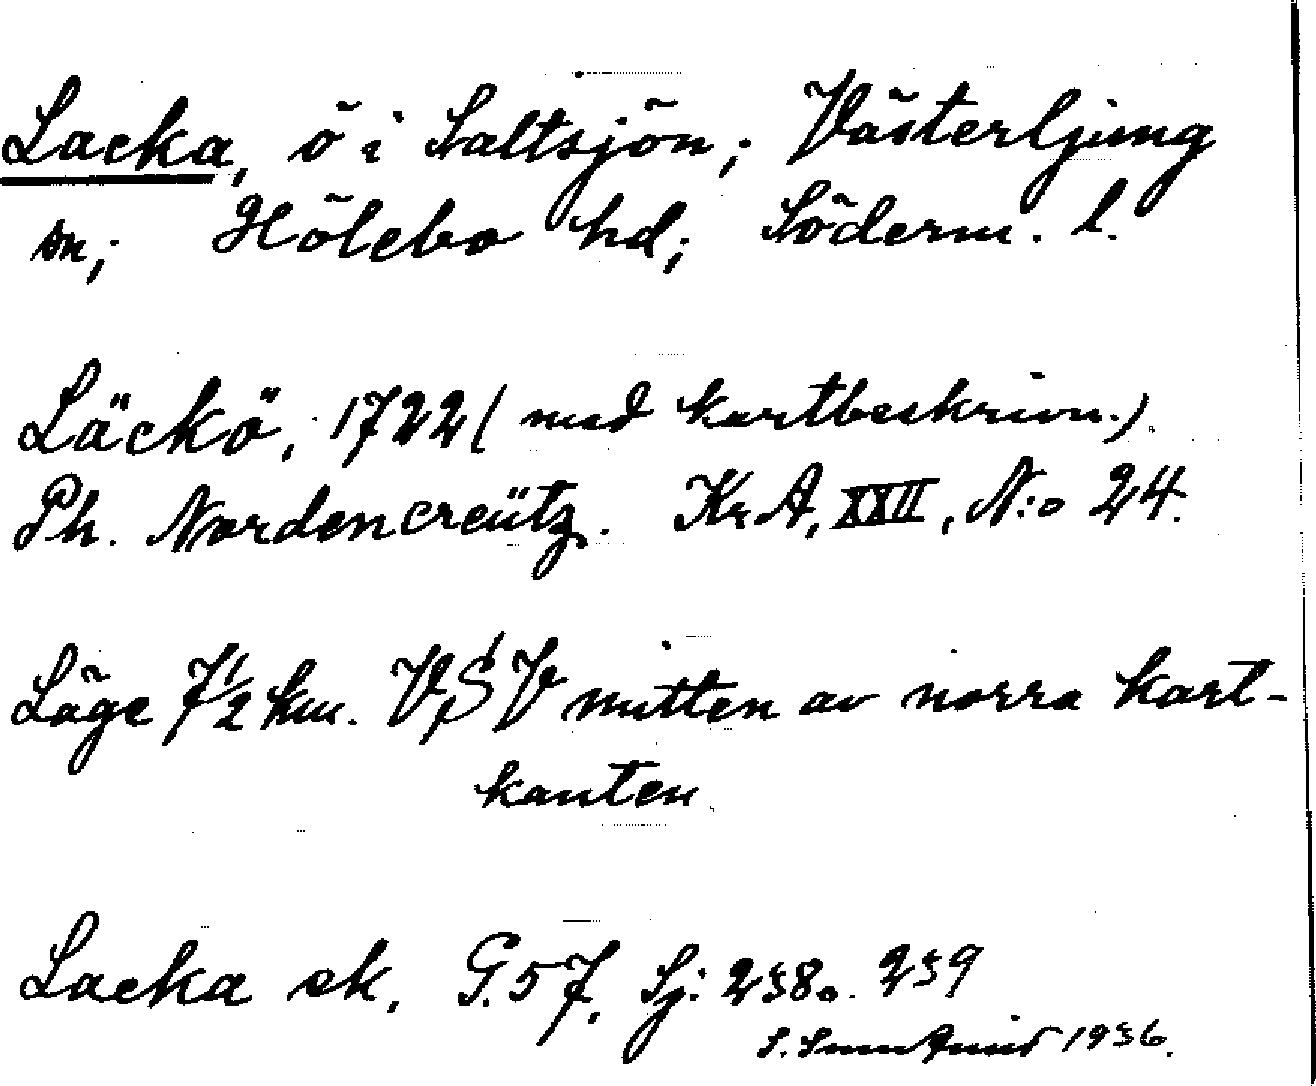 Lacka, ö i Saltsjön; Västerljung
sn; Hölebo hd; Söderm. l.
Läckö, 1722 (med kartbeskrivn.).
Ph. Nordencreütz. Kr A, XXII, N:o 24.
Läge 7 1/2 km. VSV mitten av norra kart-
kanten
Lacka ek. G. 57, Sj: 238. 239
S. 1936.